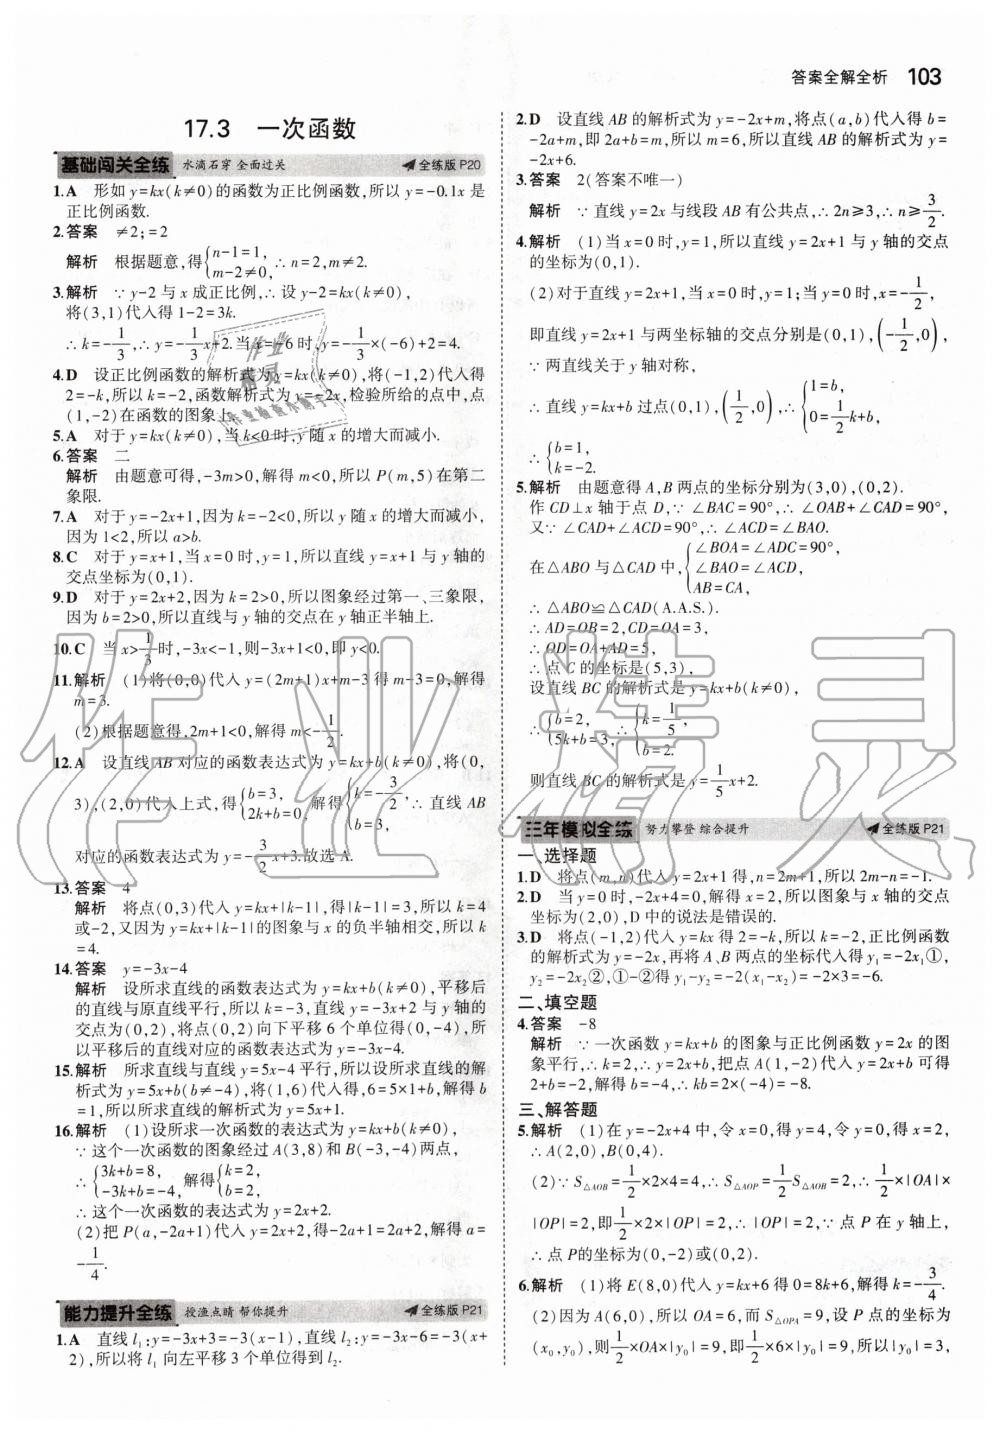 答案全解全析 103
17.3 一次函数
基础闯关全练 水滴石穿 全面过关 全练版 P20
1.A 形如 y=kx(k≠0)的函数为正比例函数,所以 y=-0.1x 是
正比例函数.
2.答案 ≠2;=2
解析 根据题意,得{n-1=1, m-2≠0, ∴n=2,m≠2.
3.解析 ∵y-2 与 x 成正比例,∴设 y-2=kx(k≠0),
将(3,1)代入得 1-2=3k.
∴k=-1/3,∴y=-1/3x+2.当 x=-6 时,y=-1/3×(-6)+2=4.
4.D 设正比例函数的解析式为 y=kx(k≠0),将(-1,2)代入得
2=-k,所以 k=-2,函数解析式为 y=-2x,检验所给的点中,点
(1,-2)在函数的图象上.
5.A 对于 y=kx(k≠0),当 k<0 时,y 随 x 的增大而减小.
6.答案 二
解析 由题意可得,-3m>0,解得 m<0,所以 P(m,5)在第二
象限.
7.A 对于 y=-2x+1,因为 k=-2<0,所以 y 随 x 的增大而减小,
因为 1<2,所以 a>b.
8.C 对于 y=x+1,当 x=0 时,y=1,所以直线 y=x+1 与 y 轴的
交点坐标为(0,1).
9.D 对于 y=2x+2,因为 k=2>0,所以图象经过第一、三象限,
因为 b=2>0,所以直线与 y 轴的交点在 y 轴正半轴上.
10.C 当 x>1/3时,-3x<-1,则-3x+1<0,即 y<0.
11.解析 (1)将(0,0)代入 y=(2m+1)x+m-3 得 m-3=0,解得
m=3.
(2)根据题意得,2m+1<0,解得 m<-1/2.
12.A 设直线 AB 对应的函数表达式为 y=kx+b(k≠0),将(0,
3),(2,0)代入上式,得{b=3, 2k+b=0, 解得{k=-3/2, b=3, ∴直线 AB
对应的函数表达式为 y=-3/2x+3.故选 A.
13.答案 4
解析 将点(0,3)代入 y=kx+|k-1|,得|k-1|=3,所以 k=4
或-2,又因为 y=kx+|k-1|的图象与 x 的负半轴相交,所以 k
=4.
14.答案 y=-3x-4
解析 设所求直线的函数表达式为 y=kx+b(k≠0),平移后
的直线与原直线平行,所以 k=-3,直线 y=-3x+2 与 y 轴的
交点为(0,2),将点(0,2)向下平移 6 个单位得(0,-4),所
以平移后的直线对应的函数表达式为 y=-3x-4.
15.解析 所求直线与直线 y=5x-4 平行,所以设所求直线的解
析式为 y=5x+b(b≠-4),将(1,6)代入得,6=5×1+b,解得 b
=1,所以所求直线的解析式为 y=5x+1.
16.解析 (1)设所求一次函数的表达式为 y=kx+b(k≠0),
∵这个一次函数的图象经过 A(3,8)和 B(-3,-4)两点,
∴{3k+b=8, -3k+b=-4, 解得{k=2, b=2,
∴这个一次函数的表达式为 y=2x+2.
(2)把 P(a,-2a+1)代入 y=2x+2,得-2a+1=2a+2,解得 a=
-1/4.
能力提升全练 授渔点睛 帮你提升 全练版 P21
1.A 直线 l₁:y=-3x+3=-3(x-1),直线 l₂:y=-3x-6=-3(x+
2),所以将 l₁ 向左平移 3 个单位得到 l₂.
2.D 设直线 AB 的解析式为 y=-2x+m,将点(a,b)代入得 b=
-2a+m,即 2a+b=m,所以 m=6,所以直线 AB 的解析式为 y=
-2x+6.
3.答案 2(答案不唯一)
解析 ∵直线 y=2x 与线段 AB 有公共点,∴2n≥3,∴n≥3/2.
4.解析 (1)当 x=0 时,y=1,所以直线 y=2x+1 与 y 轴的交点
的坐标为(0,1).
(2)对于直线 y=2x+1,当 x=0 时,y=1;当 y=0 时,x=-1/2,
即直线 y=2x+1 与两坐标轴的交点分别是(0,1),(-1/2,0),
∵两直线关于 y 轴对称,
∴直线 y=kx+b 过点(0,1),(1/2,0),∴{1=b, 0=1/2k+b,
∴{b=1, k=-2.
5.解析 由题意得 A,B 两点的坐标分别为(3,0),(0,2).
作 CD⊥x 轴于点 D,∵∠BAC=90°,∴∠OAB+∠CAD=90°,
又∵∠CAD+∠ACD=90°,∴∠ACD=∠BAO.
在△ABO 与△CAD 中,{∠BOA=∠ADC=90°, ∠BAO=∠ACD, AB=CA,
∴△ABO≌△CAD(A.A.S.).
∴AD=OB=2,CD=OA=3,
∴OD=OA+AD=5,
∴点 C 的坐标是(5,3),
设直线 BC 的解析式是 y=kx+b(k≠0),
∴{b=2, 5k+b=3, ∴{k=1/5, b=2.
则直线 BC 的解析式是 y=1/5x+2.
三年模拟全练 努力攀登 综合提升 全练版 P21
一、选择题
1.D 将点(m,n)代入 y=2x+1 得,n=2m+1,所以 2m-n=-1.
2.D 当 y=0 时,-2x+4=0,解得 x=2,所以图象与 x 轴的交点
坐标为(2,0),D 中的说法是错误的.
3.D 将点(-1,2)代入 y=kx 得 2=-k,所以 k=-2,正比例函数
的解析式为 y=-2x,再将 A、B 两点的坐标代入得 y₁=-2x₁①,
y₂=-2x₂②,①-②得 y₁-y₂=-2(x₁-x₂)=-2×3=-6.
二、填空题
4.答案 -8
解析 ∵一次函数 y=kx+b 的图象与正比例函数 y=2x 的图
象平行,∴k=2,∴y=2x+b,把点 A(1,-2)代入 y=2x+b 可得
2+b=-2,解得 b=-4,∴kb=2×(-4)=-8.
三、解答题
5.解析 (1)在 y=-2x+4 中,令 x=0,得 y=4,令 y=0,得 x=2,
∴A(2,0),B(0,4).
(2)∵S△AOB=1/2×2×4=4,∴S△AOP=1/2S△AOB=2,∴1/2×|OA|×
|OP|=2,即1/2×2×|OP|=2,∴|OP|=2,∵点 P 在 y 轴上,
∴点 P的坐标为(0,-2)或(0,2).
6.解析 (1)将 E(8,0)代入 y=kx+6 得 0=8k+6,解得 k=-3/4.
(2)因为 A(6,0),所以 OA=6,而 S△OPA=9,设 P 点的坐标为
(x₀,y₀),则1/2×OA×|y₀|=9,即1/2×6×|y₀|=9,所以|y₀|=3,
作业精灵